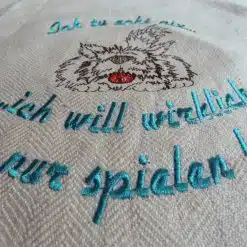 Ich tu nix...
...ich will wirklich
nur spielen !